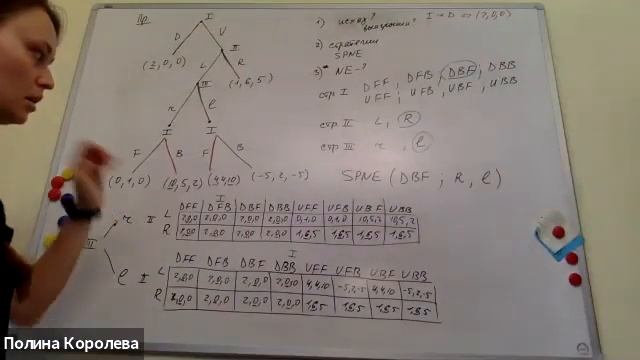 Пр
I
D V
II
(2,0,0) L R
III (1,6,5)
r l
I I
F B F B
(0,1,0) (10,5,2) (4,4,10) (-5,2,-5)
1) исход? выигрыши? I → D => (2,0,0)
2) стратегии
SPNE
3)* NE-?
стр I DFF ; DFB ; DBF ; DBB
UFF ; UFB ; UBF ; UBB
стр II L, R
стр III r, l
SPNE (DBF ; R, l)
I
DFF DFB DBF DBB UFF UFB UBF UBB
r II L 2,0,0 2,0,0 2,0,0 2,0,0 0,1,0 0,1,0 10,5,2 10,5,2
R 2,0,0 2,0,0 2,0,0 2,0,0 1,6,5 1,6,5 1,6,5 1,6,5
III
I
DFF DFB DBF DBB UFF UFB UBF UBB
l II L 2,0,0 2,0,0 2,0,0 2,0,0 4,4,10 -5,2,-5 4,4,10 -5,2,-5
R 2,0,0 2,0,0 2,0,0 2,0,0 1,6,5 1,6,5 1,6,5 1,6,5
Полина Королева